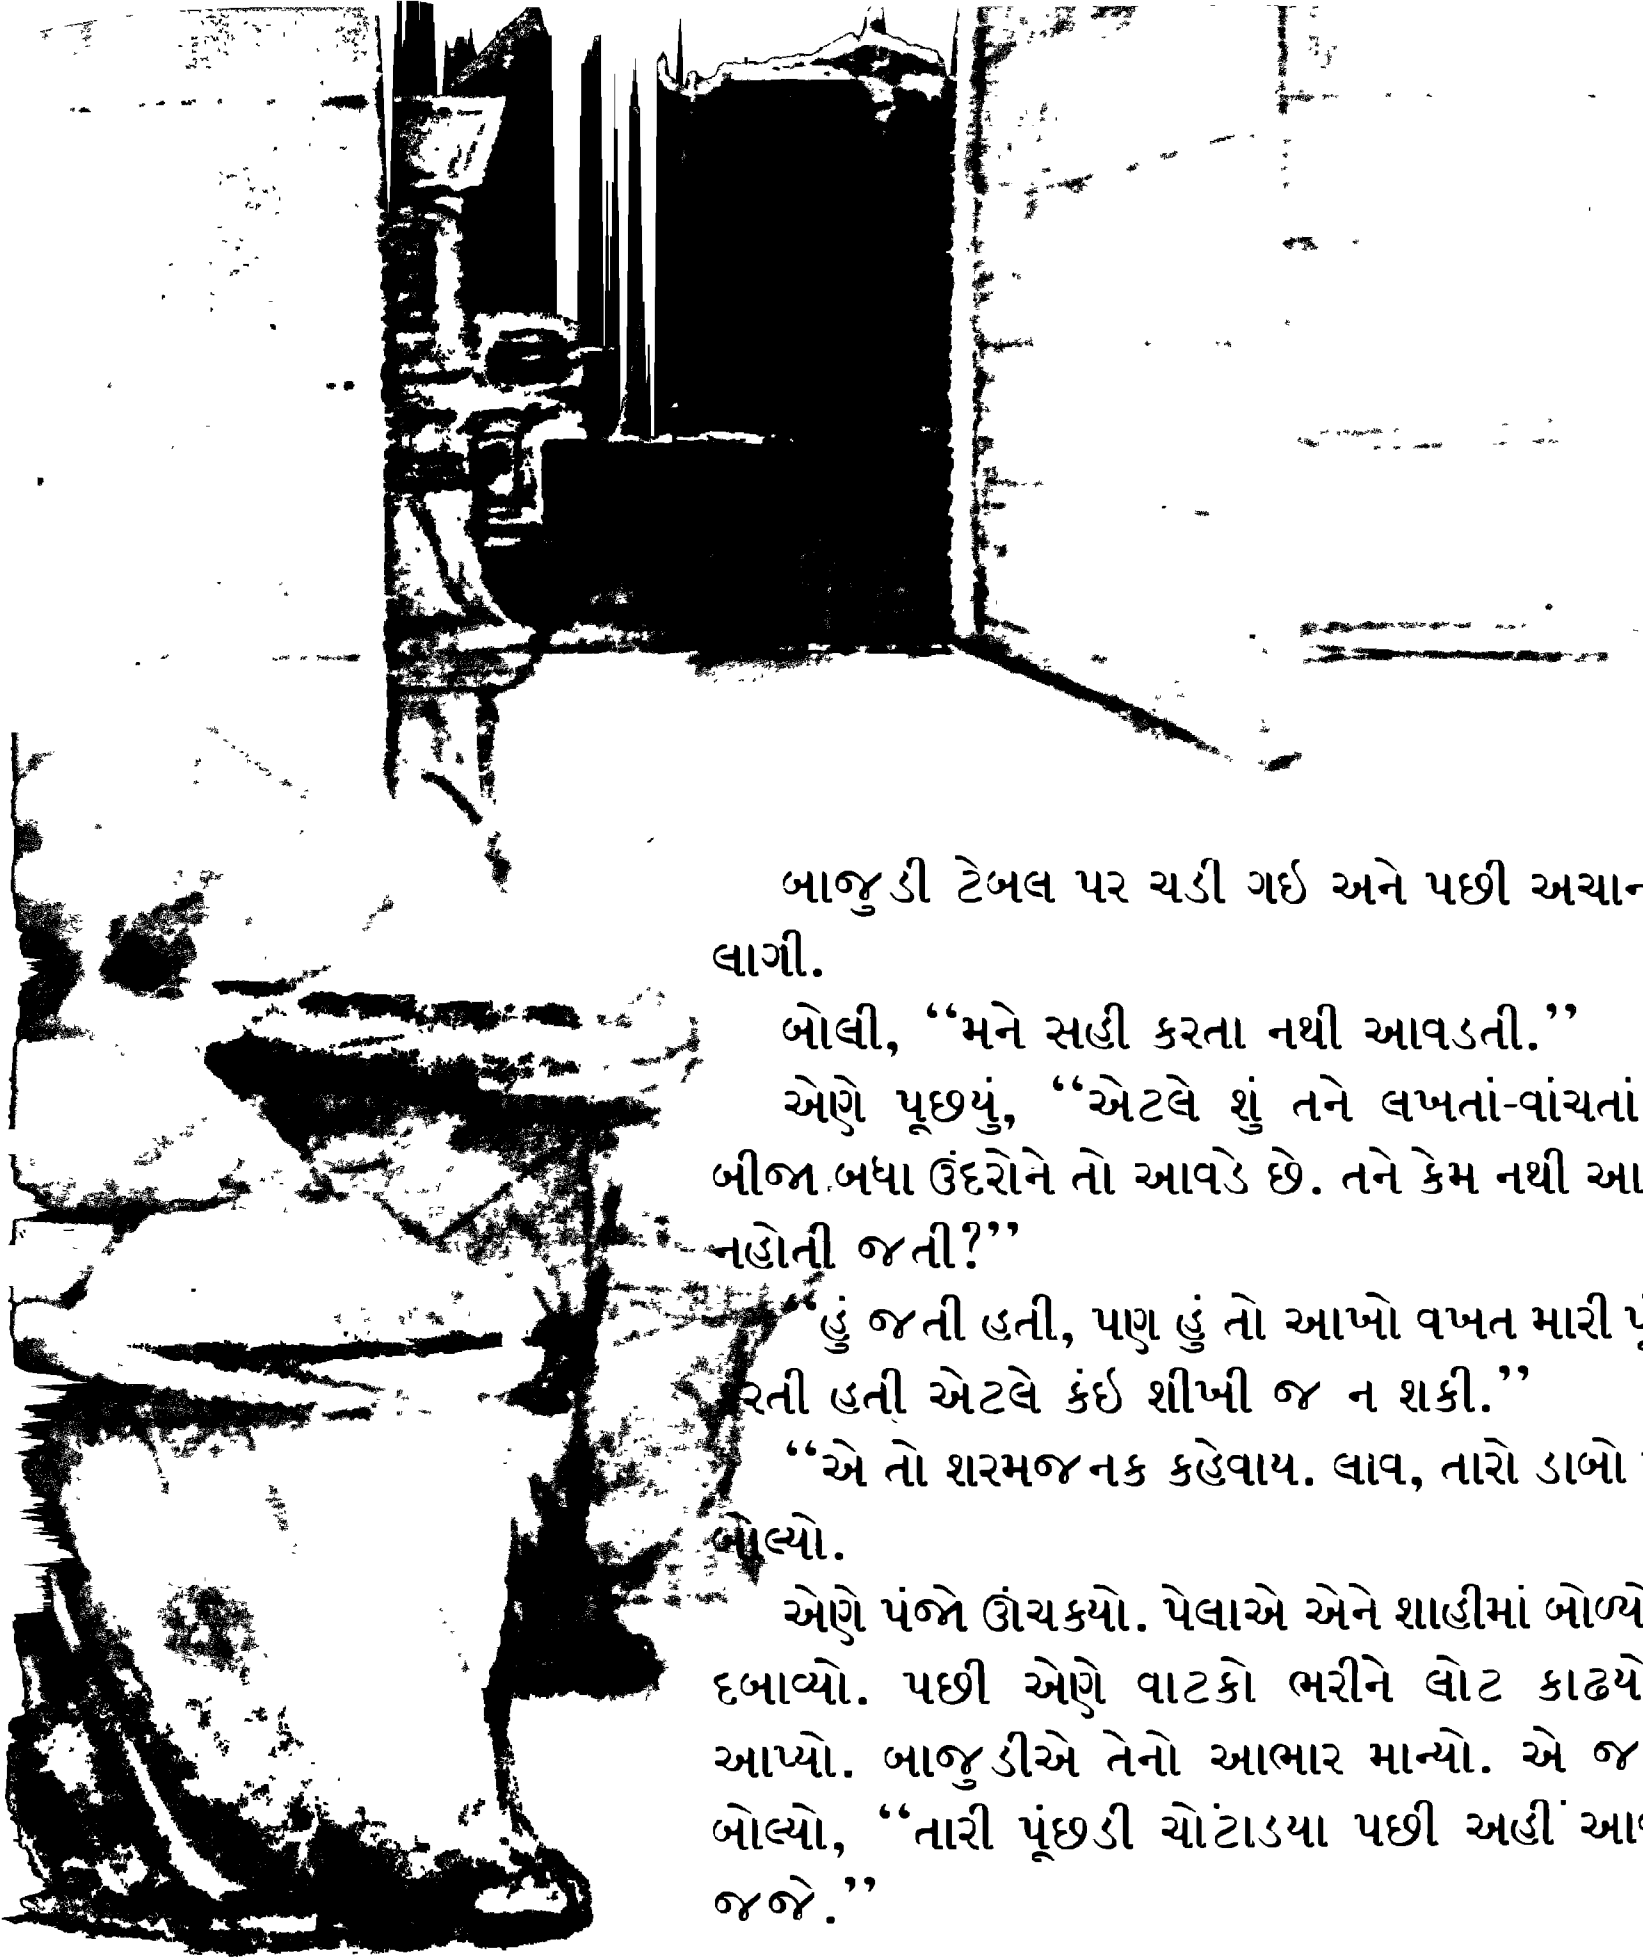 બાજુડી ટેબલ પર ચડી ગઇ અને પછી
લાગી.
બોલી, ‘‘મને સહી કરતા નથી આવડતી.’’
એણે પૂછયું, ‘‘એટલે શું તને લખતાં-વાંચતાં
બીજા બધા ઉંદરોને તો આવડે છે. તને કેમ નથી
નહોતી જતી?’’
‘‘હું જતી હતી, પણ હું તો આખો વખત મારી
હતી એટલે કંઇ શીખી જ ન શકી.’’
‘‘એ તો શરમજનક કહેવાય. લાવ, તારો ડાબો
બોલ્યો.
એણે પંજો ઊંચકયો. પેલાએ એને શાહીમાં
દબાવ્યો. પછી એણે વાટકો ભરીને લોટ
આપ્યો. બાજુડીએ તેનો આભાર માન્યો. એ
બોલ્યો, ‘‘તારી પૂંછડી ચોંટાડયા પછી અહીં
જજે.’’